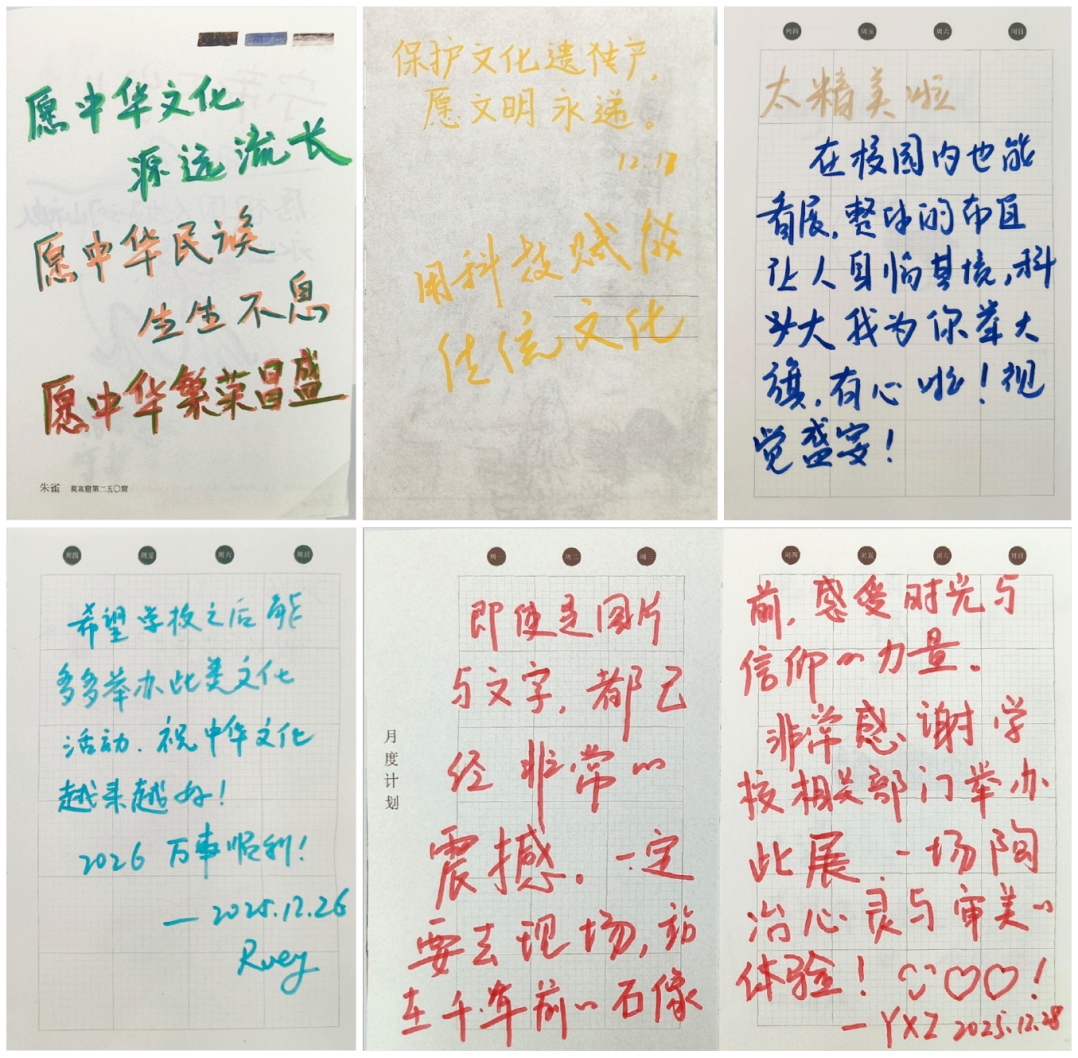 愿中华文化
源远流长
愿中华民族
生生不息
愿中华繁荣昌盛
朱雀 莫高窟第二五〇窟
保护文化遗产,
愿文明永递。
12.18
用科技赋能
传统文化
周四 周五 周六 周日
太精美啦
在校园内也能
看展,整体的布置
让人身临其境,科
大我为你举大
旗,有心啦!视
觉盛宴!
周四 周五 周六 周日
希望学校之后能
多多举办此类文化
活动.祝中华文化
越来越好!
2026 万事顺利!
—2025.12.26
Ruey
周一 周二 周三
月度计划
即使是图片
与文字,都已
经非常的
震撼。一定
要去现场,站
在千年前的石像
周四 周五 周六 周日
前,感受时光与
信仰的力量。
非常感谢学
校相关部门举办
此展.一场陶
冶心灵与审美的
体验!
—YXZ 2025.12.28